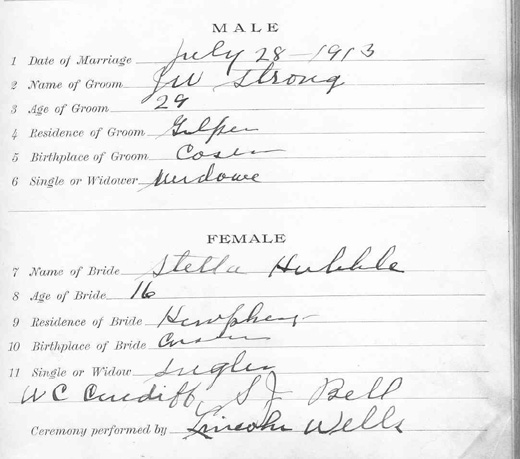 MALE
1 Date of Marriage July 28-1913
2 Name of Groom J W Strong
3 Age of Groom 29
4 Residence of Groom
5 Birthplace of Groom
6 Single or Widower Widowe
FEMALE
7 Name of Bride Stella Hubble
8 Age of Bride 16
9 Residence of Bride
10 Birthplace of Bride
11 Single or Widow
W C Cundiff, S J Bell
Ceremony performed by Lincoln Wells